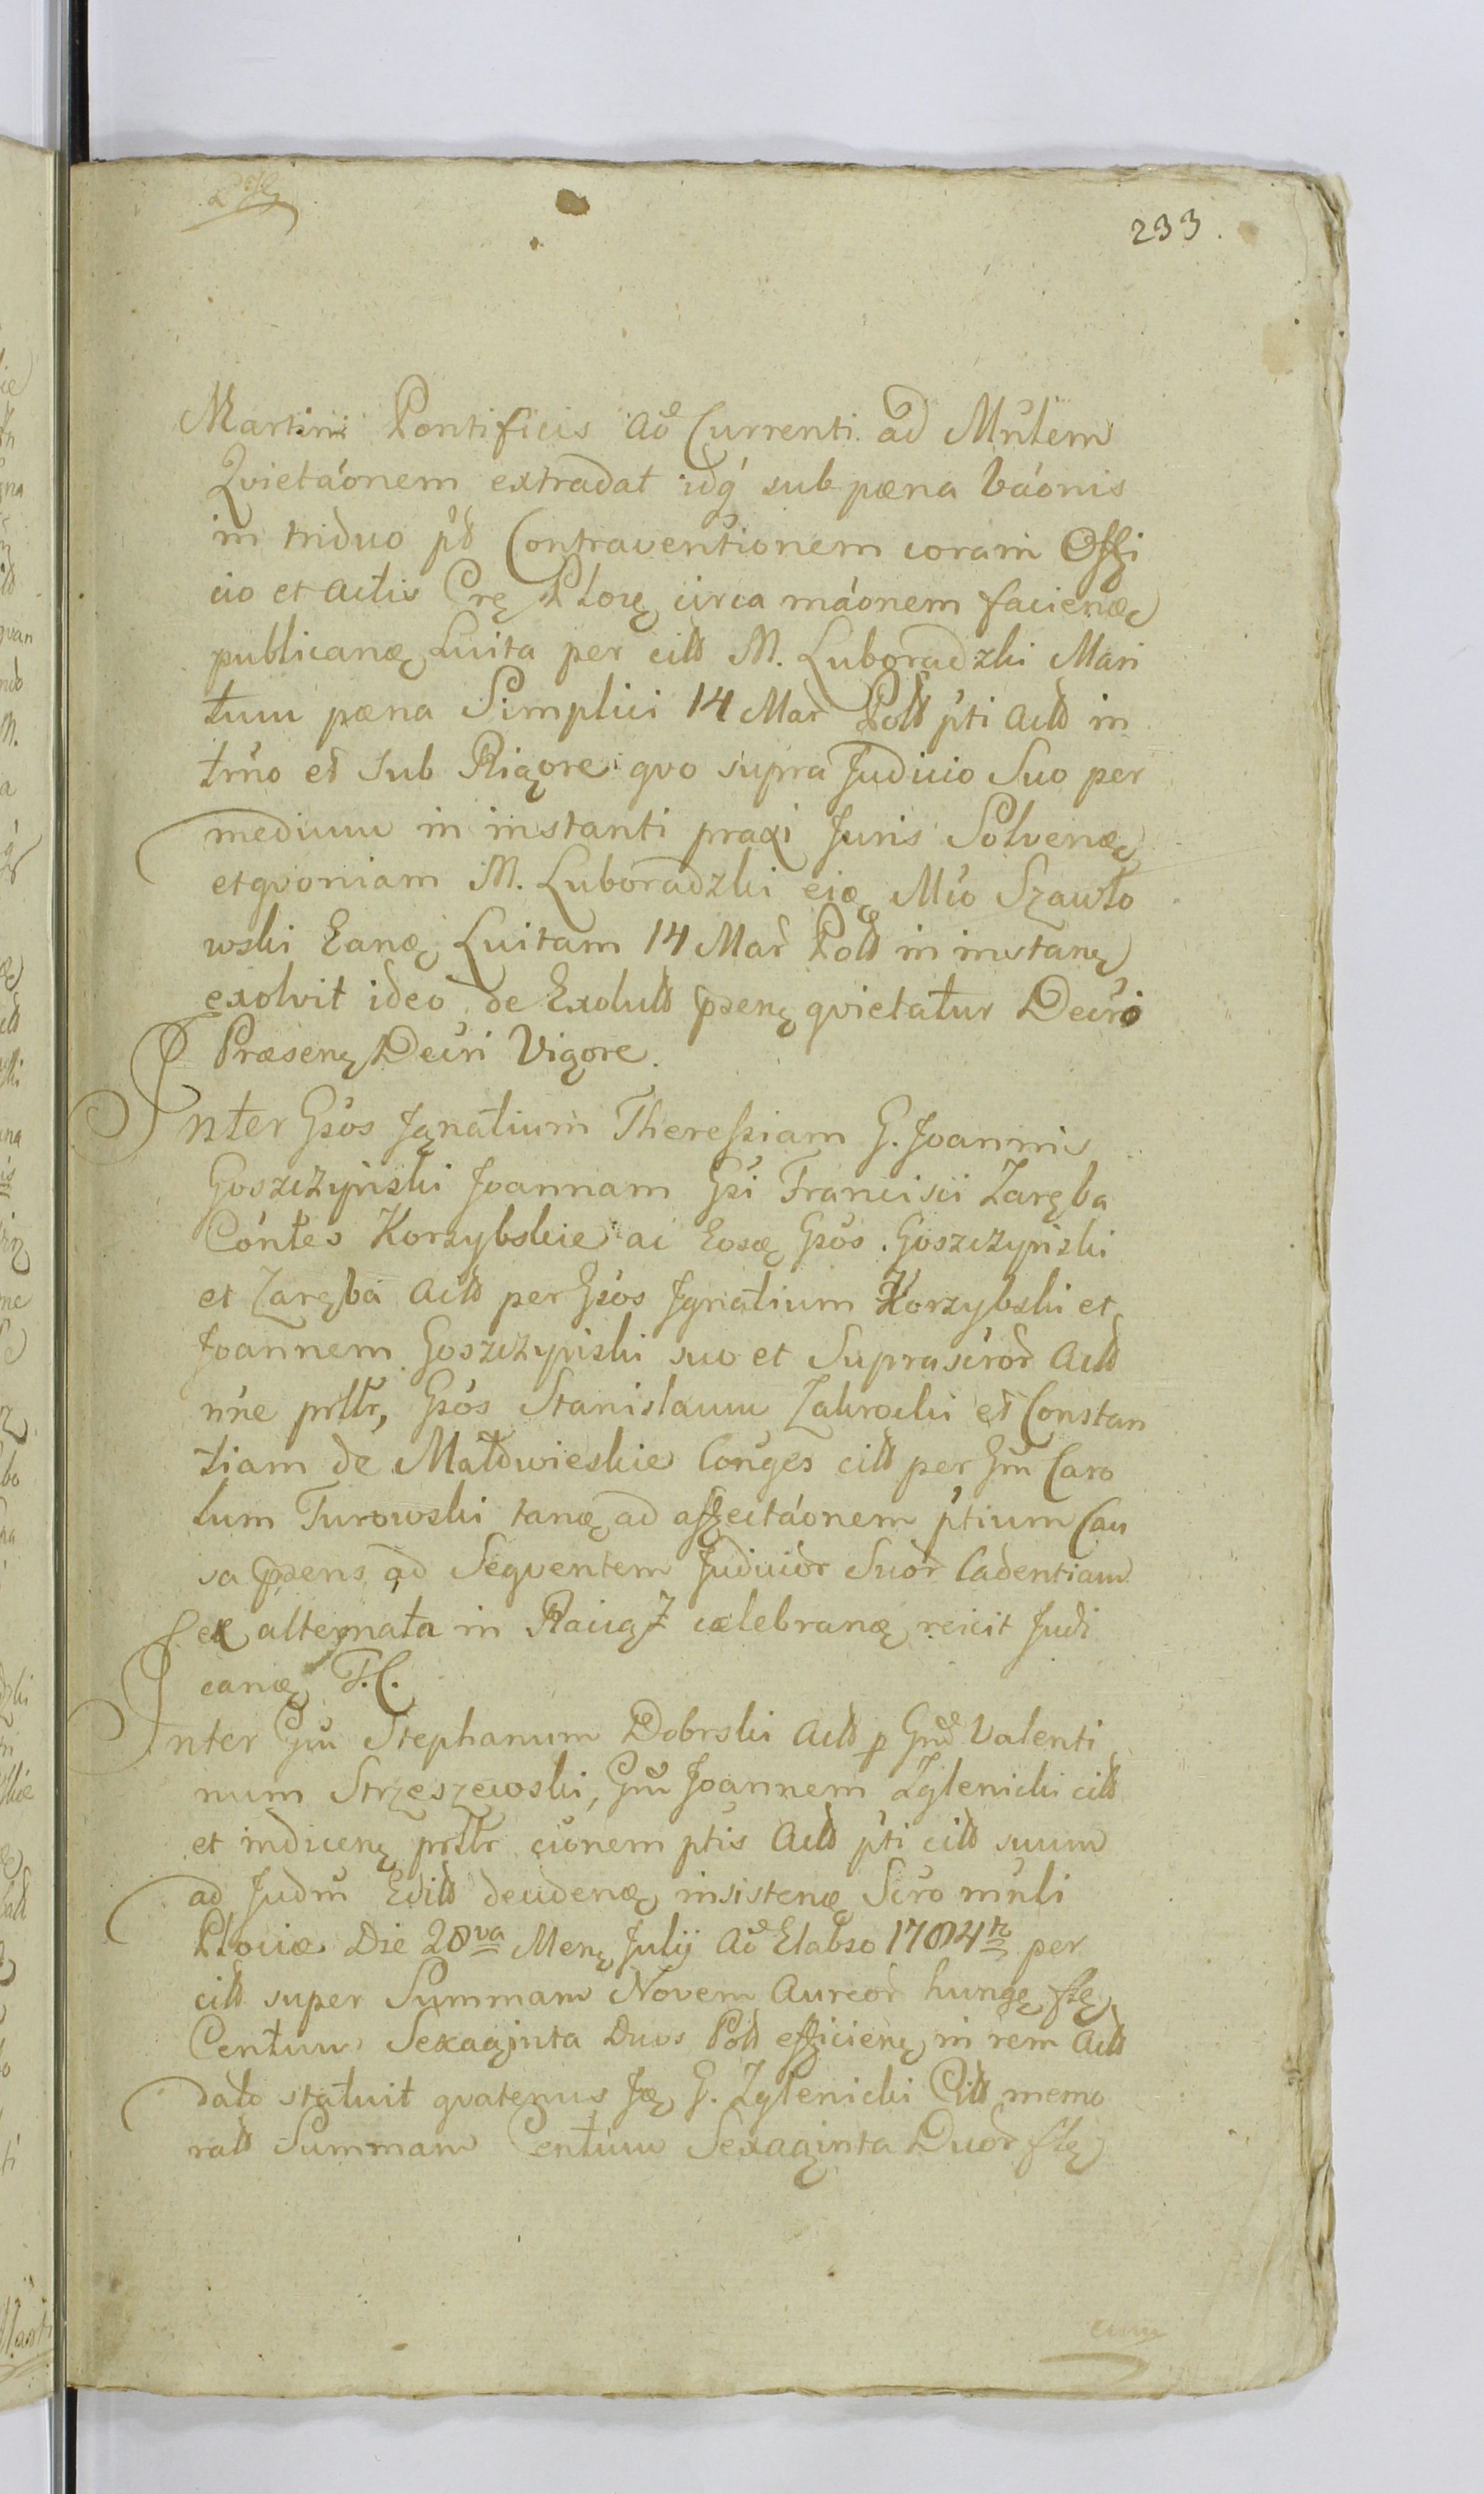 233.
Martini Pontificis Aõ Currenti ad Mnłem
Qvietáonem extradat idq́ sub pæna báonis
in triduo pd Contraventionem coram Offi
cio et Actis Crę Płocę circa máonem facienæ
publicanæ Luita per citt M. Luboradzki Mari
tum pæna Simplici 14 Mar Poltt pti Actt in
trno et sub Rigore qvo supra Judicio Suo per
medium in instanti praxi Juris Solvenæ
etqvoniam M. Luboradzki eię Mćo Szawło
wski Eanæ Luitam 14 Mar Poltt in instanę
exolvit ideo de Exolutt pæenę qvietatur Decró
Præsenę Decri Vigore.
Inter Gsos Jgnatium Theressiam G. Joannis
Goszczyński Joannam Gsi Francisci Zaręba
Cóntes Korzybskie ac Eosæ Gsos. Goszczyński
et Zaręba Actt per Gsos Jgnatium Korzybski et
Joannem Goszczyński suo et Suprascror Actt
nne prttr, Gsos Stanisławm Zakrocki et Constan
tiam de Małdwieskie Conges citt per Gm Caro
lum Turowski tanæ ad affectáonem ptium Cau
sa pæens ad Seqventem Judicior Suor Cadentiam
ex alternata in Raciąż cælebranæ reicit Judi
canæ T.C.
Inter Gm Stephanum Dobrski Actt p Gnd Valenti
num Strzeszewski, Gm Joannem Zglenicki citt
et indicenę prttr cionem ptis Actt pti citt suum
ad Judm Editt decidenæ insistenæ Scro mnli
Płociæ Die 28va Menę Julij Aõ Elabso 1784to per
citt super Summam Novem Aureor hungę flę
Centum Sexaginta Duos Poltt efficienę in rem Actt
dato statuit qvatenus Jæ G. Zglenicki Citt memo
ratt Summam Centum Sexaginta Duor flę
cum